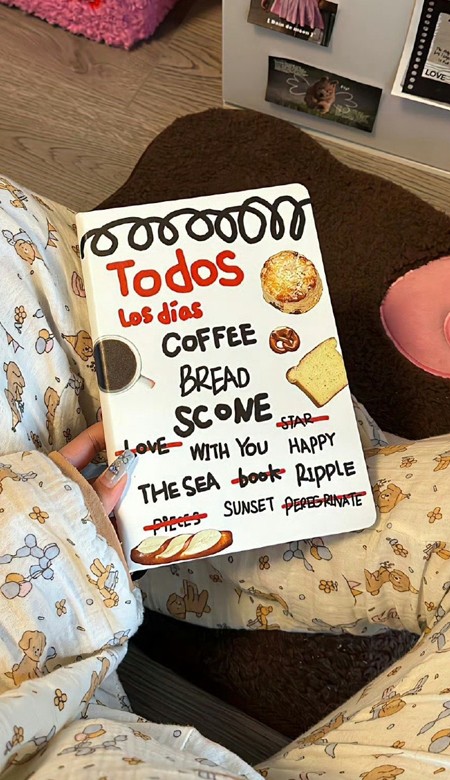 [Bain de maen]
LOVE
Todos
Los días
COFFEE
BREAD
SCONE
STAR
LOVE WITH YOU HAPPY
THE SEA book RIPPLE
PIECES SUNSET PEREGRINATE